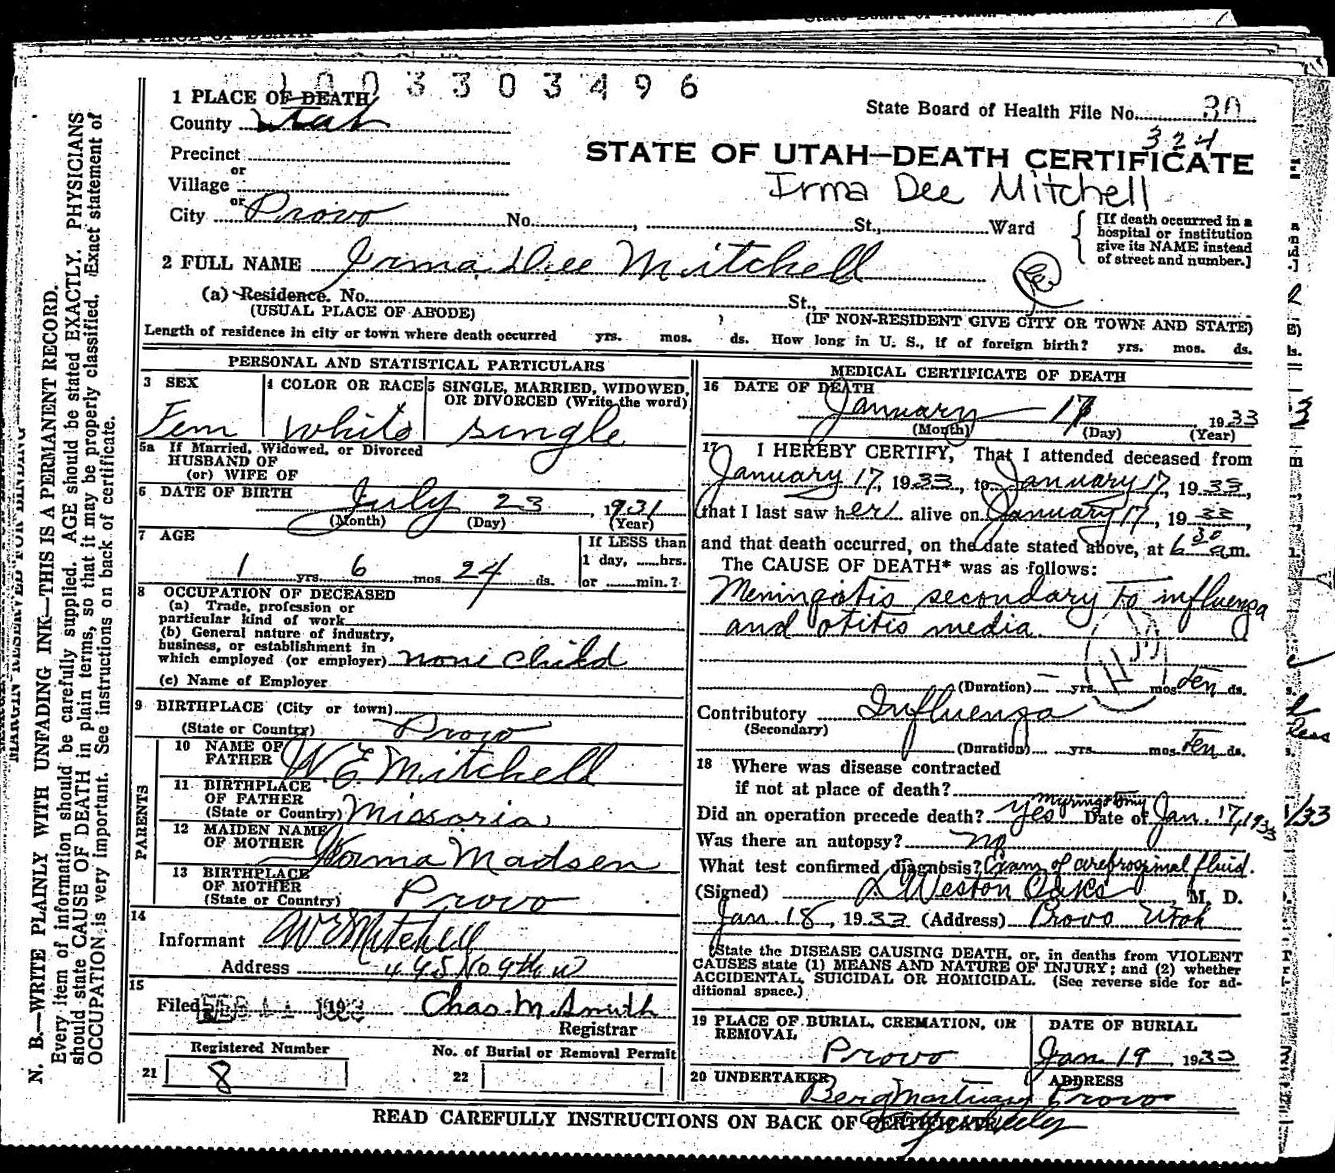 1003303496
1 PLACE OF DEATH
State Board of Health File No. 30
County Utah
324
Precinct
STATE OF UTAH—DEATH CERTIFICATE
or
Village
Irma Dee Mitchell
or
City Provo No. , St., Ward
[If death occurred in a
hospital or institution
give its NAME instead
of street and number.]
2 FULL NAME Irma Dee Mitchell
(a) Residence. No. St.,
(USUAL PLACE OF ABODE) (IF NON-RESIDENT GIVE CITY OR TOWN AND STATE)
Length of residence in city or town where death occurred yrs. mos. ds. How long in U. S., if of foreign birth? yrs. mos. ds.
PERSONAL AND STATISTICAL PARTICULARS
3 SEX 4 COLOR OR RACE 5 SINGLE, MARRIED, WIDOWED,
OR DIVORCED (Write the word)
Fem White single
5a If Married, Widowed, or Divorced
HUSBAND OF
(or) WIFE OF
6 DATE OF BIRTH
July 23, 1931
(Month) (Day) (Year)
7 AGE
If LESS than
1 day, ......hrs.
1 yrs. 6 mos. 24 ds. or ......min.?
8 OCCUPATION OF DECEASED
(a) Trade, profession or
particular kind of work
(b) General nature of industry,
business, or establishment in
which employed (or employer) none child
(c) Name of Employer
9 BIRTHPLACE (City or town)
(State or Country) Provo
PARENTS
10 NAME OF
FATHER W. E. Mitchell
11 BIRTHPLACE
OF FATHER
(State or Country) Missoria
12 MAIDEN NAME
OF MOTHER Norma Madsen
13 BIRTHPLACE
OF MOTHER
(State or Country) Provo
14
Informant W E Mitchell
Address 495 No 9th W
15
Filed FEB 1933 Chas. M. Smith
Registrar
Registered Number No. of Burial or Removal Permit
21 8 22
MEDICAL CERTIFICATE OF DEATH
16 DATE OF DEATH
January 17 1933
(Month) (Day) (Year)
17 I HEREBY CERTIFY, That I attended deceased from
January 17, 1933, to January 17, 1933,
that I last saw her alive on January 17, 1933,
and that death occurred, on the date stated above, at 6 30 a.m.
The CAUSE OF DEATH* was as follows:
Meningitis secondary to influenza
and otitis media.
(Duration) yrs. mos. ten ds.
Contributory Influenza
(Secondary)
(Duration) yrs. mos. ten ds.
18 Where was disease contracted
if not at place of death?
Did an operation precede death? yes myringotomy Date of Jan. 17, 1933
Was there an autopsy? no
What test confirmed diagnosis? Exam. of cerebrospinal fluid.
(Signed) L Weston Oaks M. D.
Jan 18, 1933 (Address) Provo Utah
*State the DISEASE CAUSING DEATH, or, in deaths from VIOLENT
CAUSES state (1) MEANS AND NATURE OF INJURY; and (2) whether
ACCIDENTAL, SUICIDAL OR HOMICIDAL. (See reverse side for ad-
ditional space.)
19 PLACE OF BURIAL, CREMATION, OR
REMOVAL
Provo
DATE OF BURIAL
Jan. 19 1933
20 UNDERTAKER ADDRESS
Berg Mortuary Provo
READ CAREFULLY INSTRUCTIONS ON BACK OF CERTIFICATE
MARGIN RESERVED FOR BINDING
N. B.—WRITE PLAINLY WITH UNFADING INK—THIS IS A PERMANENT RECORD.
Every item of information should be carefully supplied. AGE should be stated EXACTLY. PHYSICIANS
should state CAUSE OF DEATH in plain terms, so that it may be properly classified. Exact statement of
OCCUPATION is very important. See instructions on back of certificate.